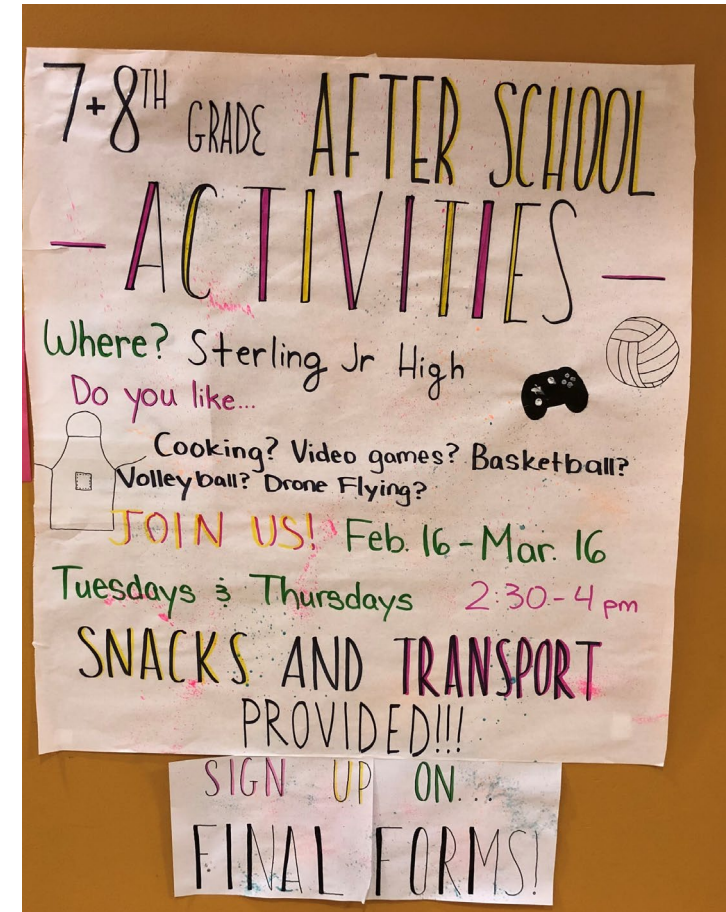 7+8TH GRADE AFTER SCHOOL
- ACTIVITIES -
Where? Sterling Jr High
Do you like...
Cooking? Video games? Basketball?
Volleyball? Drone Flying?
JOIN US! Feb. 16 - Mar. 16
Tuesdays & Thursdays 2:30-4 pm
SNACKS AND TRANSPORT
PROVIDED!!!
SIGN UP ON...
FINAL FORMS!